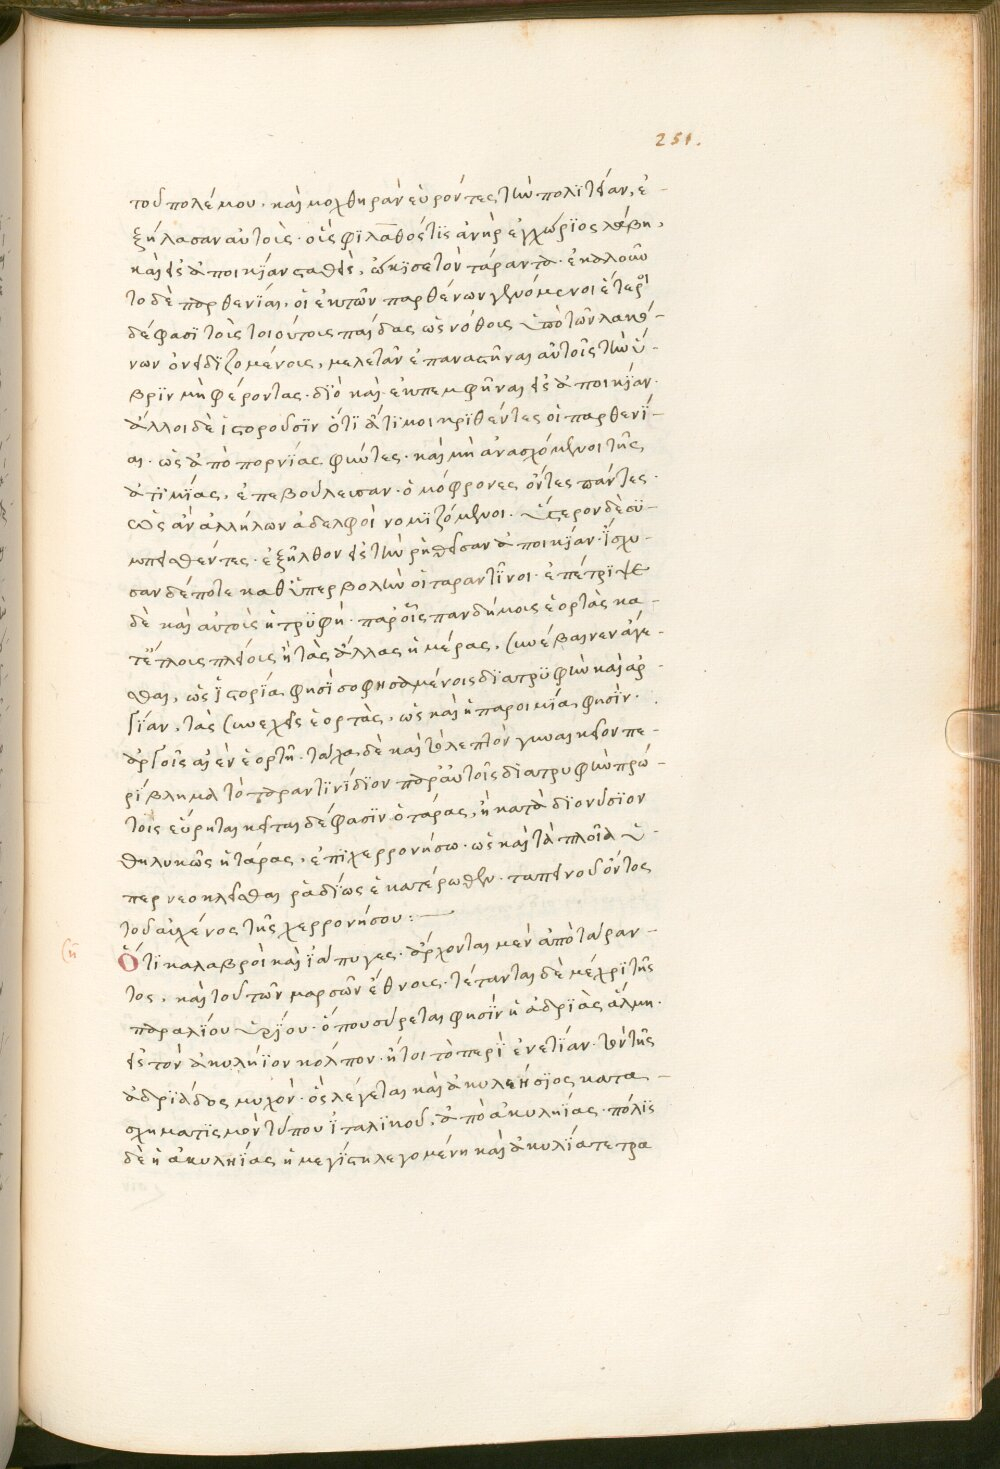 251.
τοῦ πολέμου. καὶ μοχθηρὰν εὑρόντες τὴν πολιτείαν, ἐ-
ξήλασαν αὐτοὺς. οἷς φίλανθός τις ἀνὴρ ἐγχώριος
καὶ εἰς ἀποικίαν σταλεὶς, ᾤκισε τὸν τάραντα. ἐκαλοῦν
το δὲ παρθενίαι, οἱ ἐκ τῶν παρθένων γενόμενοι ἕτεροι
δέ φασι τοὺς τοιούτους παῖδας ὡς νόθους ὑπὸ τῶν λακώ-
νων ὀνειδιζομένους, μελετᾶν ἐπαναστῆναι αὐτοῖς τὴν ὕ-
βριν μὴ φέροντας. διὸ καὶ ἐκπεμφθῆναι εἰς ἀποικίαν.
ἄλλοι δὲ ἱστοροῦσιν ὅτι ἄτιμοι κριθέντες οἱ παρθενί-
αι. ὡς ἀπὸ πορνίας φύντες. καὶ μὴ ἀνασχόμενοι τῆς
ἀτιμίας, ἐπεβούλευσαν. ὁμόφρονες ὄντες πάντες.
ὡς ἂν ἀλλήλων ἀδελφοὶ νομιζόμενοι. ὕστερον δὲ συ-
μπεισθέντες. ἐξῆλθον εἰς τὴν ῥηθεῖσαν ἀποικίαν. ἴσχυ-
σαν δέ ποτε καθ ὑπερβολὴν οἱ ταραντῖνοι. ἐπέτριψε
δὲ καὶ αὐτοὺς ἡ τρυφή. παρ οἷς πανδήμους ἑορτὰς κα-
τ ἔτος πλείους ἢ τὰς ἄλλας ἡμέρας, συνέβαινεν ἄγε-
σθαι, ὡς ἱστορία φησὶ σοφησαμένοις διὰ τρυφὴν καὶ ἀρ-
γίαν, τὰς συνεχεῖς ἑορτὰς, ὡς καὶ ἡ παροιμία φησὶν.
ἀργοῖς αἰὲν ἑορτή. τάχα δὲ καὶ τὸ λεπτὸν γυναικεῖον πε-
ρίβλημα τὸ ταραντινίδιον παρ αὐτοῖς διὰ τρυφὴν πρώ-
τοις εὕρηται κεῖται δέ φασιν ὁ τάρας, ἢ κατὰ διονύσιον
θηλυκῶς ἡ τάρας, ἐπὶ χερρονήσω. ὡς καὶ τὰ πλοῖα ὑ-
περνεολκεῖσθαι ῥαδίως ἑκατέρωθεν. ταπεινοῦ ὄντος
τοῦ αὐχένος τῆς χερρονήσου:—
Ὅτι καλαβροὶ καὶ ἰάπυγες. ἄρχονται μὲν ἀπὸ τάραν-
τος, καὶ τοῦ τῶν μαρσῶν ἔθνους. τέτανται δὲ μέχρι τῆς
παραλίου ὑρίου. ὅπου σύρεται φησὶν ἡ ἀδριὰς ἅλμη.
εἰς τὸν ἀκυλήϊον κόλπον. ἤτοι τὸ περὶ ἐνετίαν. τὸν τῆς
ἀδριάδος μυχὸν. ὃς λέγεται καὶ ἀκυλεήσιος κατα-
σχηματισμὸν τύπου ἰταλικοῦ, ἀπὸ ἀκυληίας. πόλις
δὲ ἡ ἀκυληίας ἡ μεγίστη λεγομένη καὶ ἀκυλία τετρα